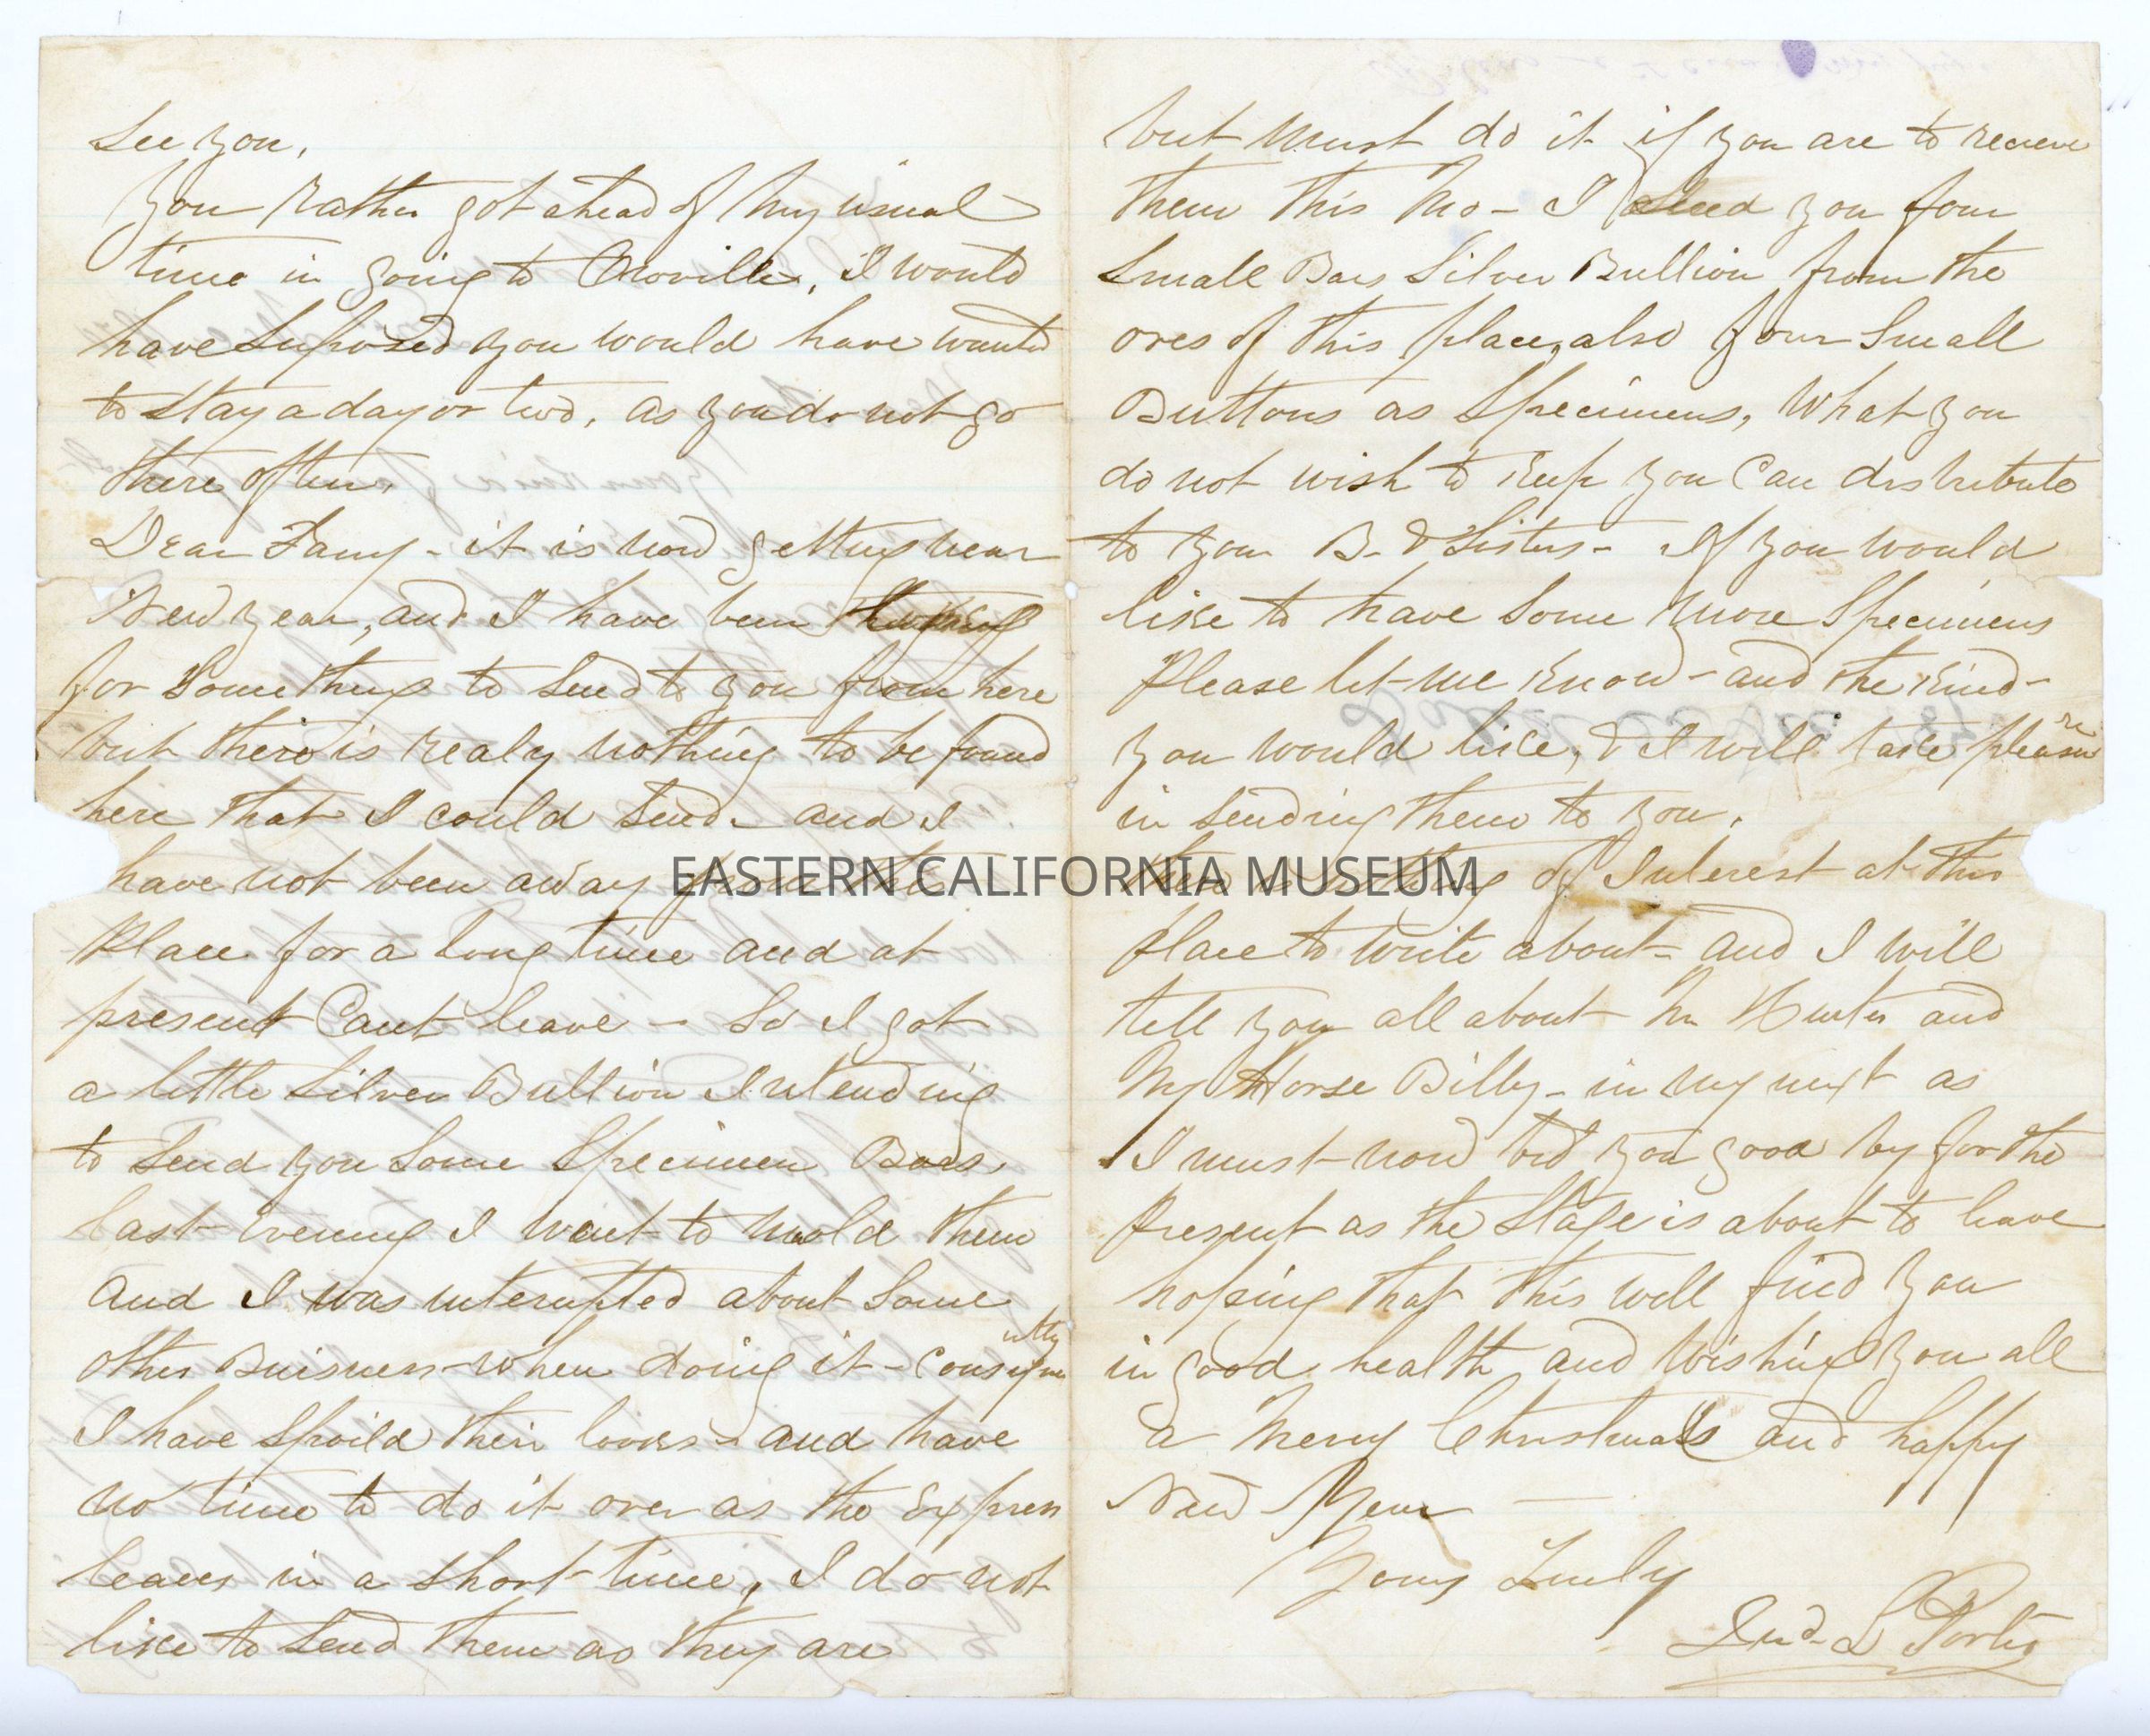 See you,
You Rather got ahead of my usual
time in going to Oroville, I would
have Suposed you would have wanted
to Stay a day or two, as you do not go
there often,
Dear Fany - it is now getting near
New year, and I have been thinking
for Something to Send to you from here
but there is realy nothing to be found
here that I could Send - and I
have not been away from this
Place for a long time and at
present Cant leave - So I got
a little Silver Bullion Intending
to Send you Some Specimen Bars
last Evening I went to mold them
and I was interupted about Some
other Buisness - when doing it - Consequently
I have Spoild their looks - and have
no time to do it over as the Express
leaves in a short time, I do not
like to Send them as they are
but must do it if you are to recieve
them this Mo - I Send you four
Small Bars Silver Bullion from the
ores of this place, also four Small
Buttons as Specimens, What you
do not wish to Keep you Can distribute
to your B. & Sisters - If you would
like to have Some more Specimens
Please let me Know - and the Kind -
you would like, & I will take pleasure
in Sending them to you,
there is nothing of Interest at this
place to write about - and I will
tell you all about Mr Hunter and
My Horse Billy - in my next as
I must now bid you good by for the
present as the Stage is about to leave
hoping that this will find you
in good health and wishing you all
a Merry Christmas and happy
New Year —
Yours Truly
Jno. L Porter
EASTERN CALIFORNIA MUSEUM